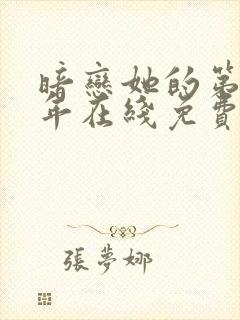 暗戀她的第
年在綫免費
張夢娜